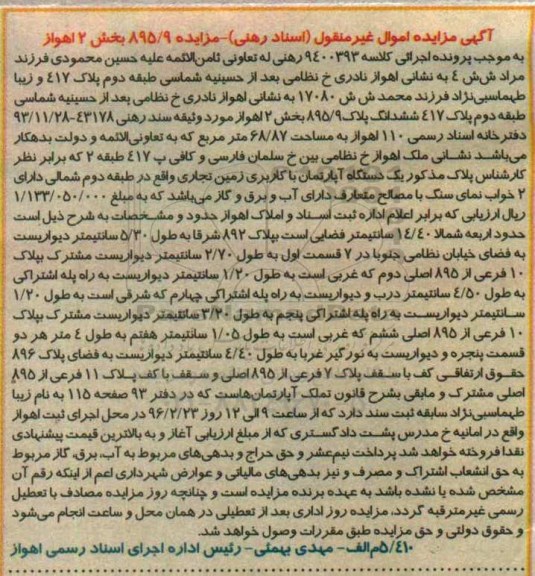 آگهی مزایده اموال غیرمنقول (اسناد رهنی)-مزایده ۸۹۵/۹ بخش ۲ اهواز
به موجب پرونده اجرائی کلاسه ۹۴۰۰۳۹۳ رهنی له تعاونی ثامن‌الائمه علیه حسین محمودی فرزند
مراد ش‌ش ۴ به نشانی اهواز نادری خ نظامی بعد از حسینیه شماسی طبقه دوم پلاک ۴۱۷ و زیبا
طهماسبی‌نژاد فرزند محمد ش ش ۱۷۰۸۰ به نشانی اهواز نادری خ نظامی بعد از حسینیه شماسی
طبقه دوم پلاک ۴۱۷ ششدانگ پلاک ۸۹۵/۹ بخش ۲ اهواز مورد وثیقه سند رهنی ۴۳۱۷۸-۹۳/۱۱/۲۸
دفترخانه اسناد رسمی ۱۱۰ اهواز به مساحت ۶۸/۸۷ متر مربع که به تعاونی‌الائمه و دولت بدهکار
می‌باشد. نشانی ملک اهواز خ نظامی بین خ سلمان فارسی و کافی پ ۴۱۷ طبقه ۲ که برابر نظر
کارشناس پلاک مذکور یک دستگاه آپارتمان با کاربری زمین تجاری واقع در طبقه دوم شمالی دارای
۲ خواب نمای سنگ با مصالح متعارف دارای آب و برق و گاز می‌باشد که به مبلغ ۱/۱۳۳/۰۵۰/۰۰۰
ریال ارزیابی که برابر اعلام اداره ثبت اسناد و املاک اهواز حدود و مشخصات به شرح ذیل است
حدود اربعه شمالا ۱۴/۴۰ سانتیمتر فضایی است بپلاک ۸۹۲ شرقا به طول ۵/۳۰ سانتیمتر دیواریست
به فضای خیابان نظامی جنوبا در ۷ قسمت اول به طول ۲/۷۰ سانتیمتر دیواریست مشترک بپلاک
۱۰ فرعی از ۸۹۵ اصلی دوم که غربی است به طول ۱/۲۰ سانتیمتر دیواریست به راه پله اشتراکی
به طول ۴/۵۰ سانتیمتر درب و دیواریست به راه پله اشتراکی چهارم که شرقی است به طول ۱/۲۰
سانتیمتر دیواریست به راه پله اشتراکی پنجم به طول ۳/۲۰ سانتیمتر دیواریست مشترک بپلاک
۱۰ فرعی از ۸۹۵ اصلی ششم که غربی است به طول ۱/۰۵ سانتیمتر هفتم به طول ۴ متر هر دو
قسمت پنجره و دیواریست به نورگیر غربا به طول ۴/۴۰ سانتیمتر دیواریست به فضای پلاک ۸۹۶
حقوق ارتفاقی کف با سقف پلاک ۷ فرعی از ۸۹۵ اصلی و سقف با کف پلاک ۱۱ فرعی از ۸۹۵
اصلی مشترک و مابقی بشرح قانون تملک آپارتمان‌هاست که در دفتر ۹۳ صفحه ۱۱۵ به نام زیبا
طهماسبی‌نژاد سابقه ثبت سند دارد که از ساعت ۹ الی ۱۲ روز ۹۶/۲/۲۳ در محل اجرای ثبت اهواز
واقع در امانیه خ مدرس پشت دادگستری که از مبلغ ارزیابی آغاز و به بالاترین قیمت پیشنهادی
نقدا فروخته خواهد شد پرداخت نیم‌عشر و حق حراج و بدهی‌های مربوط به آب، برق، گاز مربوط
به حق انشعاب اشتراک و مصرف و نیز بدهی‌های مالیاتی و عوارض شهرداری اعم از اینکه رقم آن
مشخص شده یا نشده باشد به عهده برنده مزایده است و چنانچه روز مزایده مصادف با تعطیل
رسمی غیرمترقبه گردد، مزایده روز اداری بعد از تعطیلی در همان محل و ساعت انجام می‌شود
و حقوق دولتی و حق مزایده طبق مقررات وصول خواهد شد.
۵/۴۱۰م‌الف- مهدی بهمئی- رئیس اداره اجرای اسناد رسمی اهواز